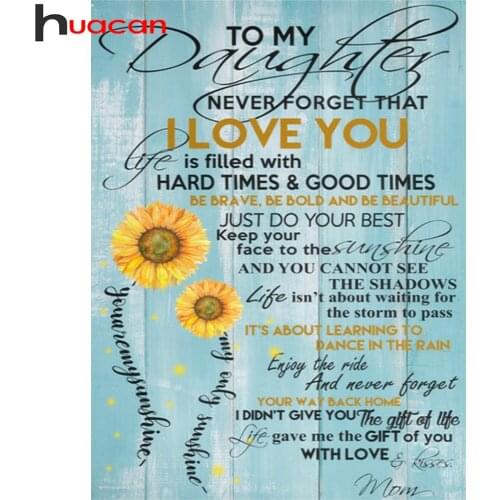 huacan
TO MY
Daughter
NEVER FORGET THAT
I LOVE YOU
life is filled with
HARD TIMES & GOOD TIMES
BE BRAVE, BE BOLD AND BE BEAUTIFUL
JUST DO YOUR BEST
Keep your
face to the sunshine
AND YOU CANNOT SEE
THE SHADOWS
Life isn't about waiting for
the storm to pass
IT'S ABOUT LEARNING TO
DANCE IN THE RAIN
Enjoy the ride
And never forget
YOUR WAY BACK HOME
I DIDN'T GIVE YOU The gift of life
Life gave me the GIFT of you
WITH LOVE & kisses.
Mom
-you are my sunshine-
my only sunshine-